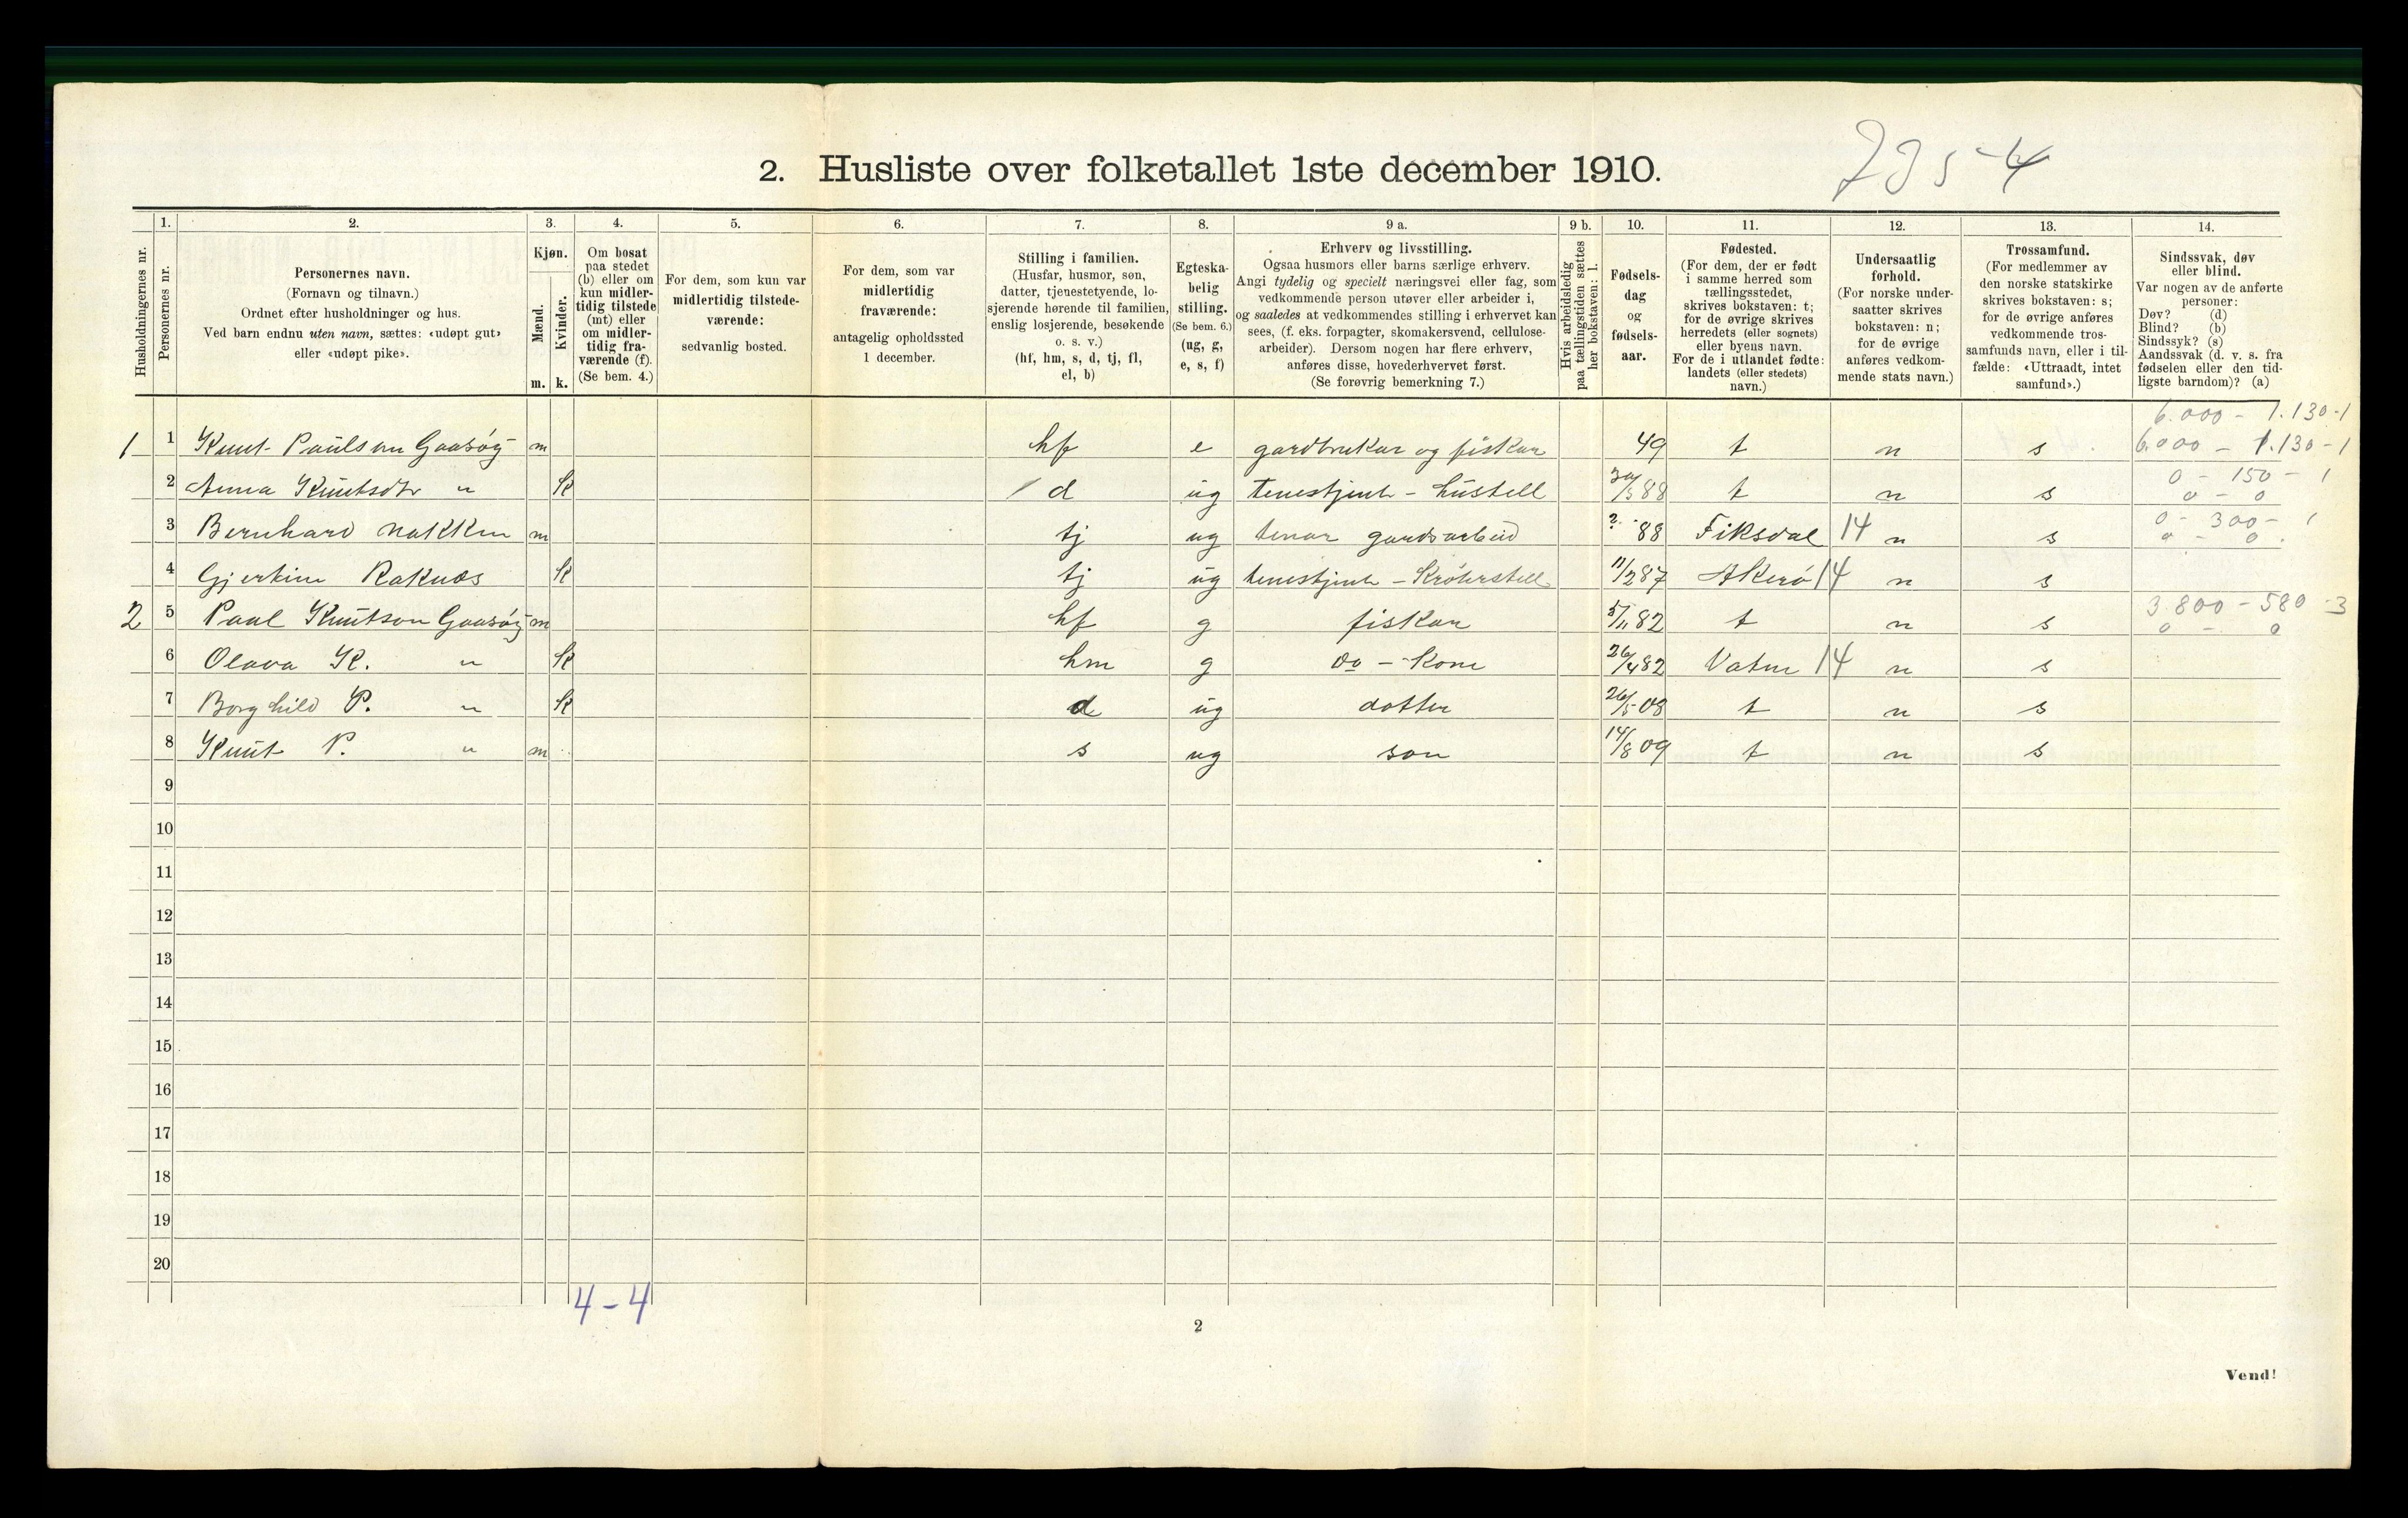 2. Husliste over folketallet 1ste december 1910.
1. 2. 3. 4. 5. 6. 7. 8. 9 a. 9 b. 10. 11. 12. 13. 14.
Husholdningernes nr.
Personernes nr.
Personernes navn.
(Fornavn og tilnavn.)
Ordnet efter husholdninger og hus.
Ved barn endnu uten navn, sættes: «udøpt gut»
eller «udøpt pike».
Kjøn.
Mænd.
Kvinder.
m. k.
Om bosat
paa stedet
(b) eller om
kun midler-
tidig tilstede
(mt) eller
om midler-
tidig fra-
værende (f).
(Se bem. 4.)
For dem, som kun var
midlertidig tilstede-
værende:
sedvanlig bosted.
For dem, som var
midlertidig
fraværende:
antagelig opholdssted
1 december.
Stilling i familien.
(Husfar, husmor, søn,
datter, tjenestetyende, lo-
sjerende hørende til familien,
enslig losjerende, besøkende
o. s. v.)
(hf, hm, s, d, tj, fl,
el, b)
Egteska-
belig
stilling.
(Se bem. 6.)
(ug, g,
e, s, f)
Erhverv og livsstilling.
Ogsaa husmors eller barns særlige erhverv.
Angi tydelig og specielt næringsvei eller fag, som
vedkommende person utøver eller arbeider i,
og saaledes at vedkommendes stilling i erhvervet kan
sees, (f. eks. forpagter, skomakersvend, cellulose-
arbeider). Dersom nogen har flere erhverv,
anføres disse, hovederhvervet først.
(Se forøvrig bemerkning 7.)
Hvis arbeidsledig
paa tællingstiden sættes
her bokstaven: l.
Fødsels-
dag
og
fødsels-
aar.
Fødested.
(For dem, der er født
i samme herred som
tællingsstedet,
skrives bokstaven: t;
for de øvrige skrives
herredets (eller sognets)
eller byens navn.
For de i utlandet fødte:
landets (eller stedets)
navn.)
Undersaatlig
forhold.
(For norske under-
saatter skrives
bokstaven: n;
for de øvrige
anføres vedkom-
mende stats navn.)
Trossamfund.
(For medlemmer av
den norske statskirke
skrives bokstaven: s;
for de øvrige anføres
vedkommende tros-
samfunds navn, eller i til-
fælde: «Uttraadt, intet
samfund».)
Sindssvak, døv
eller blind.
Var nogen av de anførte
personer:
Døv? (d)
Blind? (b)
Sindssyk? (s)
Aandssvak (d. v. s. fra
fødselen eller den tid-
ligste barndom)? (a)
6.000 - 1.130-1
1 1 Knut Paulson Gaasøy m hf e gardbrukar og fiskar 49 t n s 6.000 - 1.130-1
0 - 150 - 1
2 Anna Knutsdtr " k d ug tenestjente - hustell 88 t n s 0 - 0
0 - 300 - 1
3 Bernhard Nakken m tj ug tenar gardsarbeid ? 88 Fiksdal 14 n s 0 - 0
4 Gjertine Raknes k tj ug tenestjente - Krøterstell 11/2 87 Akerø 14 n s
3.800 - 580 - 3
2 5 Paal Knutson Gaasøy m hf g fiskar 5/11 82 t n s 0 - 0
6 Olava K. " k hm g do - Kone 26/4 82 Vatne 14 n s
7 Borghild P. " k d ug dotter 26/5 08 t n s
8 Knut P. " m s ug son 14/8 09 t n s
9
10
11
12
13
14
15
16
17
18
19
20
4-4
2
Vend!